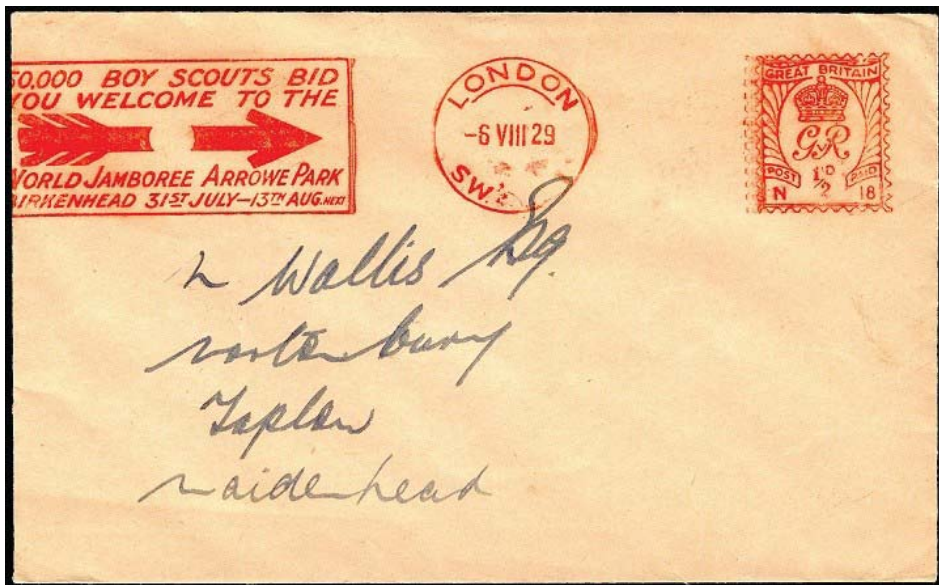 50,000 BOY SCOUTS BID
YOU WELCOME TO THE
WORLD JAMBOREE ARROWE PARK
BIRKENHEAD 31ST JULY–13TH AUG. NEXT
LONDON
-6 VIII 29
S.W.1
GREAT BRITAIN
GvR
POST 1/2D PAID
N 18
Wallis Esq.
Taplow
Maidenhead